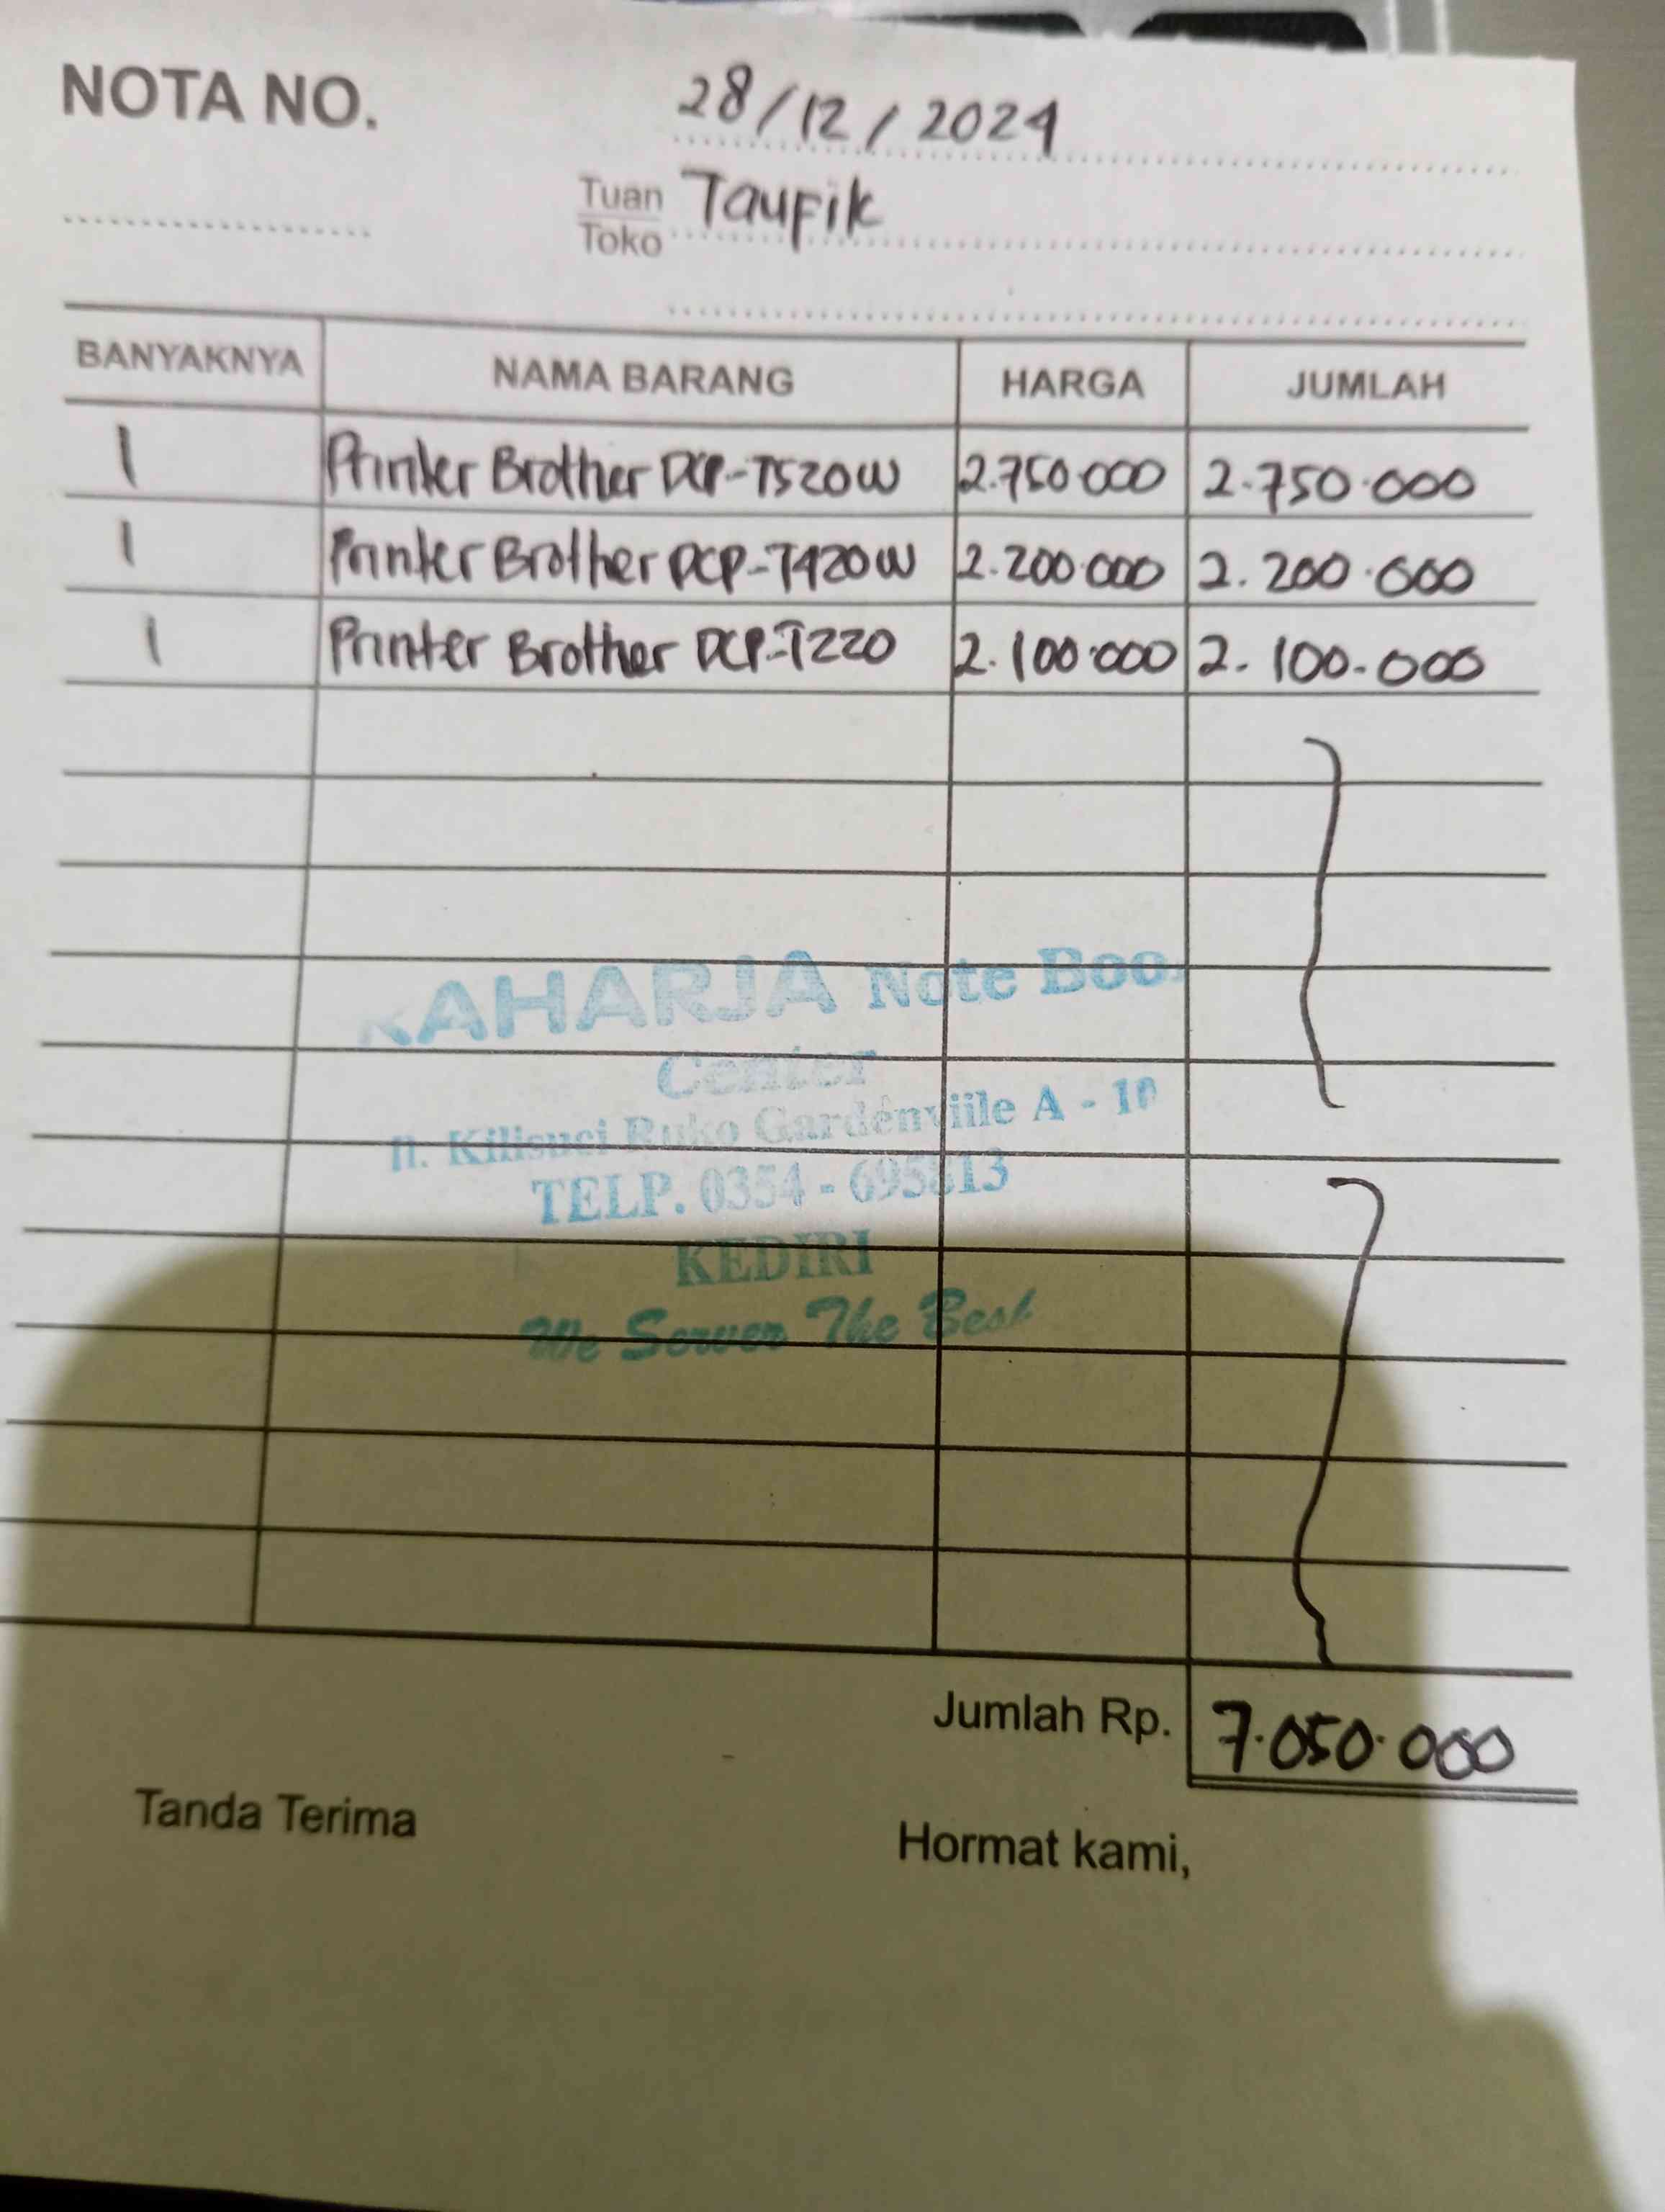 NOTA NO.
28/12/2024
Tuan Taufik
Toko
BANYAKNYA NAMA BARANG HARGA JUMLAH
1 Printer Brother DCP-T520W 2.750.000 2.750.000
1 Printer Brother DCP-T420W 2.200.000 2.200.000
1 Printer Brother DCP-T220 2.100.000 2.100.000
RAHARJA Note Boo
Center
Jl. Kilisuci Ruko Gardenviile A - 10
TELP. 0354 - 695813
KEDIRI
We Server The Best
Jumlah Rp. 7.050.000
Tanda Terima
Hormat kami,